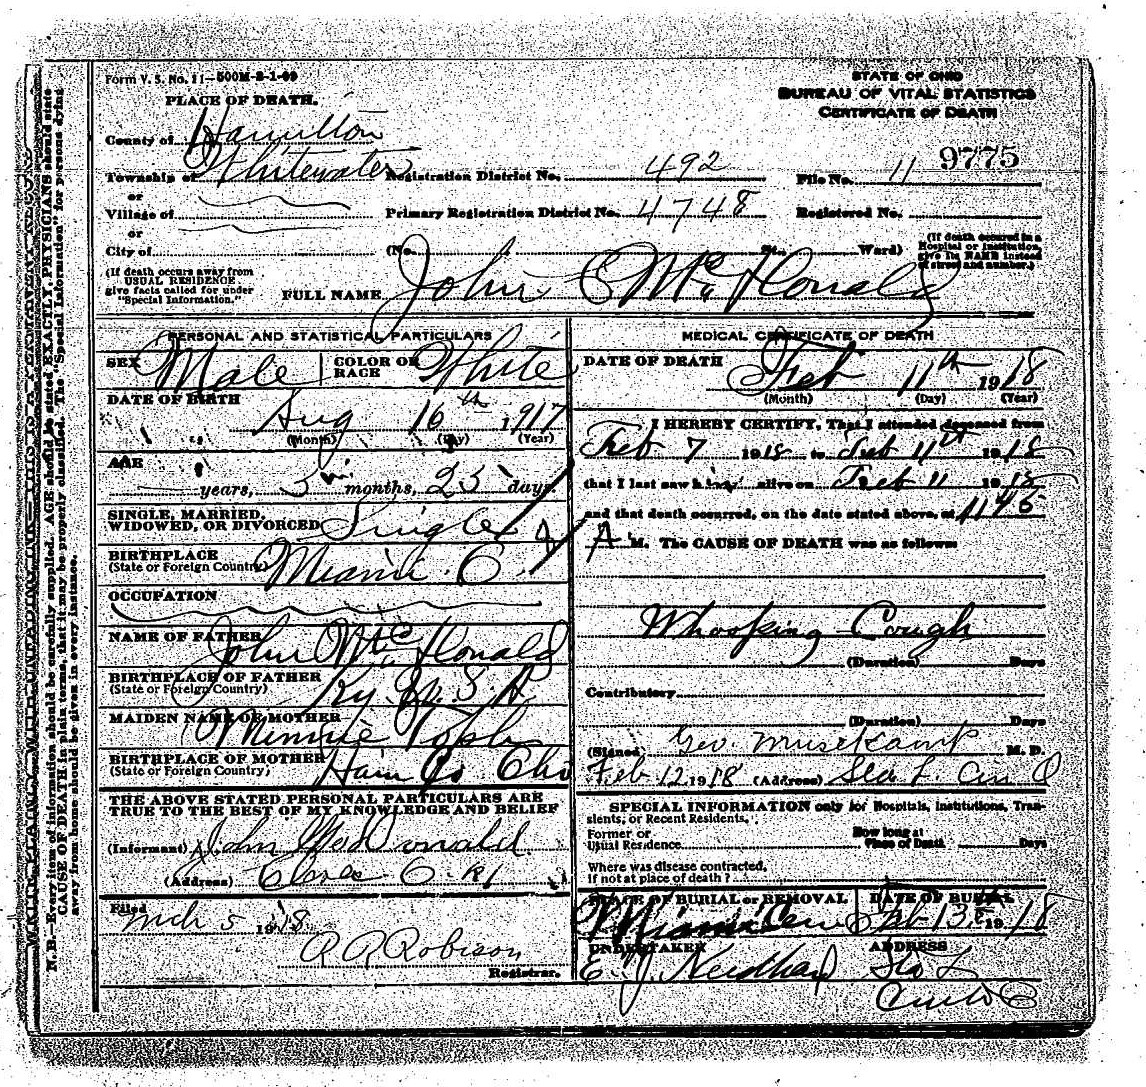 Form V. S. No. 11—500M-8-1-09
STATE OF OHIO
BUREAU OF VITAL STATISTICS
CERTIFICATE OF DEATH
PLACE OF DEATH.
County of Hamilton
Township of Whitewater Registration District No. 492 File No. 11 9775
or
Village of Primary Registration District No. 4748 Registered No.
or
City of (No. St., Ward) (If death occured in a Hospital or Institution give its NAME instead of street and number.)
(If death occurs away from USUAL RESIDENCE give facts called for under "Special Information.")
FULL NAME John E Mc Donald
PERSONAL AND STATISTICAL PARTICULARS
SEX Male COLOR OR RACE White
DATE OF BIRTH
Aug 16th, 1917
(Month) (Day) (Year)
AGE
years, 5 months, 25 days.
SINGLE, MARRIED,
WIDOWED, OR DIVORCED Single
BIRTHPLACE
(State or Foreign Country) Miami. O.
OCCUPATION
NAME OF FATHER John Mc Donald
BIRTHPLACE OF FATHER
(State or Foreign Country) Ky U. S. A
MAIDEN NAME OF MOTHER Minnie
BIRTHPLACE OF MOTHER
(State or Foreign Country) Ham Co Oho
THE ABOVE STATED PERSONAL PARTICULARS ARE
TRUE TO THE BEST OF MY KNOWLEDGE AND BELIEF
(Informant) John McDonald
(Address) Cleves O.
Filed Mch 5 1918.
R R Robison
Registrar.
MEDICAL CERTIFICATE OF DEATH
DATE OF DEATH
Feb 11th 1918
(Month) (Day) (Year)
I HEREBY CERTIFY, That I attended deceased from
Feb 7 1918 to Feb 11th 1918
that I last saw him alive on Feb 11 1918
and that death occurred, on the date stated above, at 1145
A M. The CAUSE OF DEATH was as follows:
Whooping Cough
(Duration) Days
Contributory
(Duration) Days
(Signed) Geo. Musekamp M. D.
Feb 12 1918 (Address) Sta L. Cin O
SPECIAL INFORMATION only for Hospitals, Institutions, Tran-
sients, or Recent Residents.
Former or
Usual Residence
How long at
Place of Death Days
Where was disease contracted,
If not at place of death?
PLACE OF BURIAL or REMOVAL DATE OF BURIAL
Miami Cem Feb 13 1918
UNDERTAKER ADDRESS
E. J. Neidhard Sta L
N. B.—Every item of information should be carefully supplied. AGE should be stated EXACTLY. PHYSICIANS should state
CAUSE OF DEATH in plain terms, that it may be properly classified. The "Special Information" for persons dying
away from home should be given in every instance.